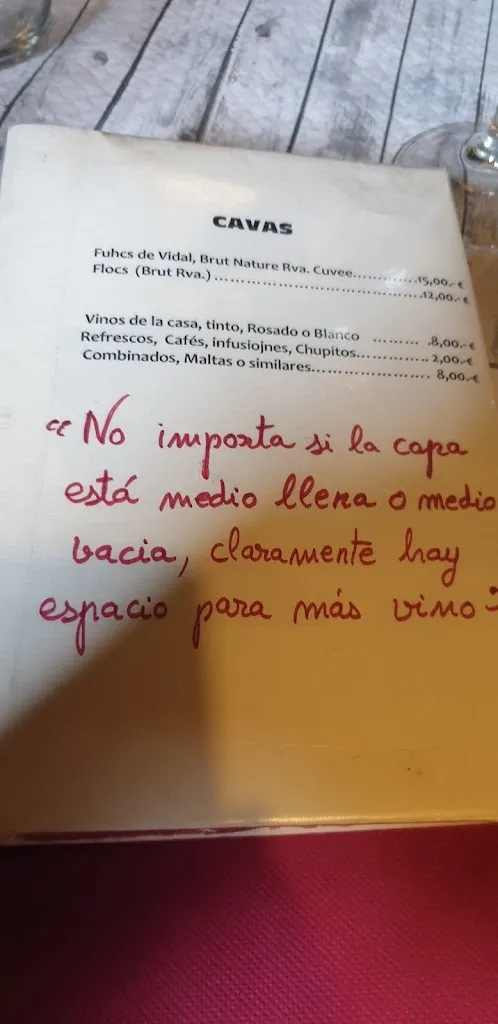 CAVAS
Fuhcs de Vidal, Brut Nature Rva. Cuvee............15,00.-€
Flocs (Brut Rva.)..............................................12,00.-€
Vinos de la casa, tinto, Rosado o Blanco ......... .8,00.-€
Refrescos, Cafés, infusiojnes, Chupitos............... 2,00.-€
Combinados, Maltas o similares......................... 8,00.-€
"No importa si la copa
está medio llena o medio
vacia, claramente hay
espacio para más vino"